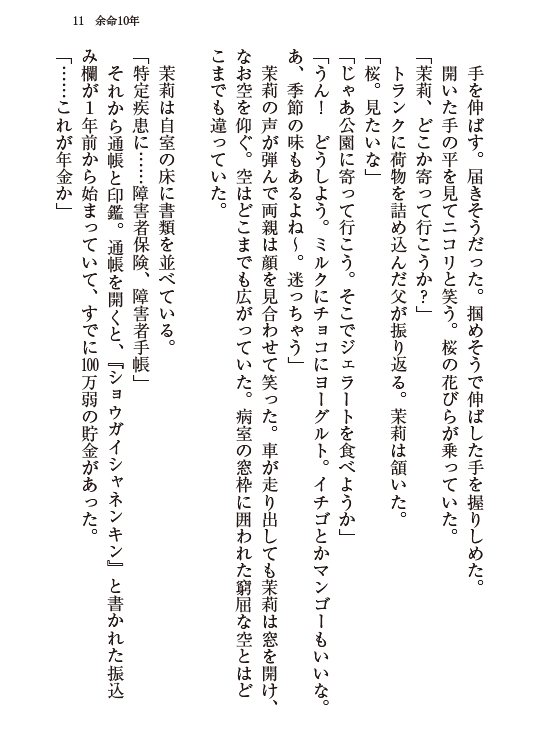 11　余命10年
手を伸ばす。届きそうだった。掴めそうで伸ばした手を握りしめた。
開いた手の平を見てニコリと笑う。桜の花びらが乗っていた。
「茉莉、どこか寄って行こうか?」
トランクに荷物を詰め込んだ父が振り返る。茉莉は頷いた。
「桜。見たいな」
「じゃあ公園に寄って行こう。そこでジェラートを食べようか」
「うん!　どうしよう。ミルクにチョコにヨーグルト。イチゴとかマンゴーもいいな。
あ、季節の味もあるよね〜。迷っちゃう」
茉莉の声が弾んで両親は顔を見合わせて笑った。車が走り出しても茉莉は窓を開け、
なお空を仰ぐ。空はどこまでも広がっていた。病室の窓枠に囲われた窮屈な空とはど
こまでも違っていた。
茉莉は自室の床に書類を並べている。
「特定疾患に……障害者保険、障害者手帳」
それから通帳と印鑑。通帳を開くと、『ショウガイシャネンキン』と書かれた振込
み欄が1年前から始まっていて、すでに100万弱の貯金があった。
「……これが年金か」